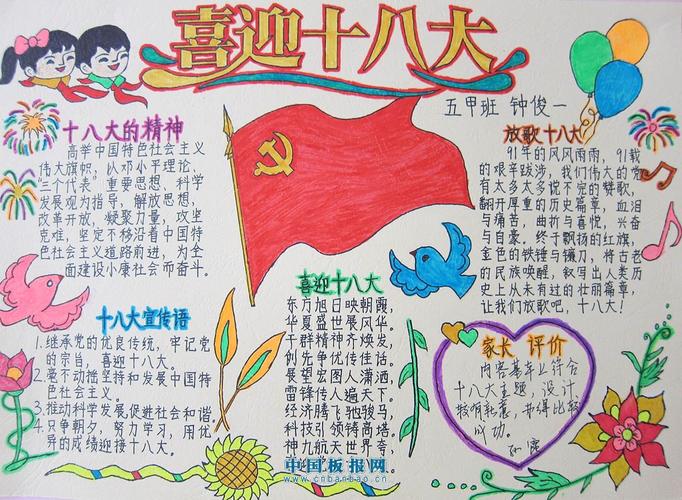 喜迎十八大
五甲班 钟俊一
十八大的精神
高举中国特色社会主义
伟大旗帜，以邓小平理论、
三个代表”重要思想、科学
发展观为指导，解放思想，
改革开放，凝聚力量，攻坚
克难，坚定不移沿着中国特
色社会主义道路前进，为全
面建设小康社会而奋斗。
放歌十八大
91年的风风雨雨，91载
的艰辛跋涉，我们伟大的党
有太多太多说不完的赞歌，
翻开厚重的历史篇章，血泪
与痛苦，曲折与喜悦，兴奋
与自豪。终于飘扬的红旗，
金色的铁锤与镰刀，将古老
的民族唤醒，叙写出人类历
史上从未有过的壮丽篇章，
让我们放歌吧，十八大！
十八大宣传语
1.继承党的优良传统，牢记党
的宗旨，喜迎十八大。
2.毫不动摇坚持和发展中国特
色社会主义。
3.推动科学发展，促进社会和谐
4.只争朝夕，努力学习，用优
异的成绩迎接十八大。
喜迎十八大
东方旭日映朝霞，
华夏盛世展风华。
干群精神齐焕发，
创先争优传佳话。
展望宏图人潇洒，
雷锋传人遍天下。
经济腾飞驰骏马，
科技引领铸高塔。
神九航天世界夸，
家长 评价
内容基本上符合
十八大主题，设计
较有
比较
成功。
中国板报网
www.cnbanbao.cn